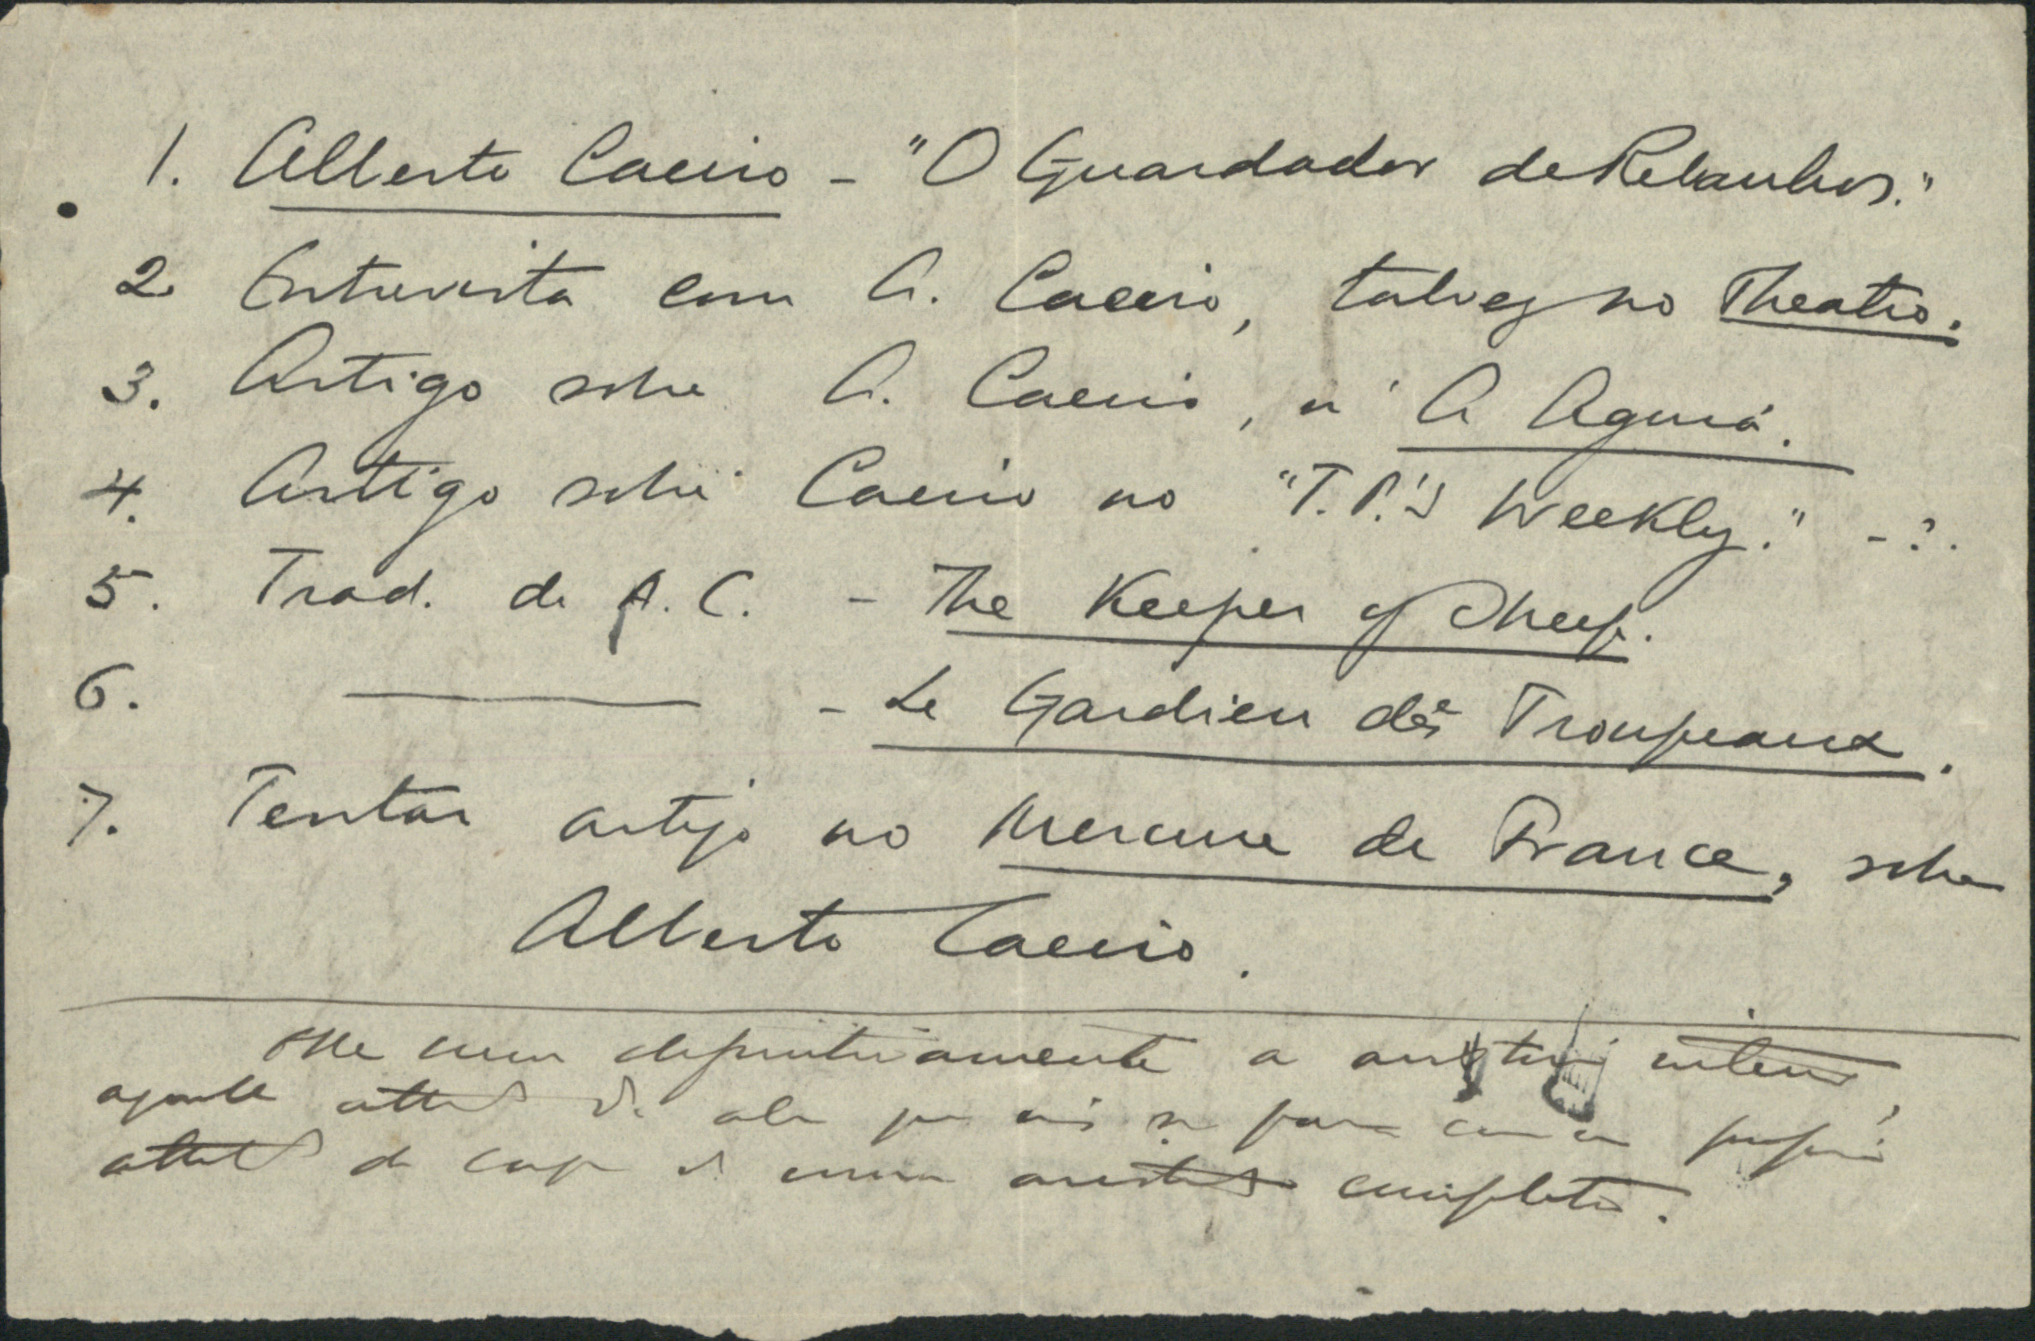 1. Alberto Caeiro – "O Guardador de Rebanhos."
2 Entrevista com A. Caeiro, talvez no Theatro.
3. Artigo sobre A. Caeiro, n'A Aguia.
4. Artigo sobre Caeiro no "T.P.'s Weekly." – ?.
5. Trad. de A. C. – The Keeper of Sheep.
6. ——— – Le Gardien des Troupeaux.
7. Tentar artigo no Mercure de France, sobre
Alberto Caeiro.
definitivamente a
aquella que para
de uma completa.